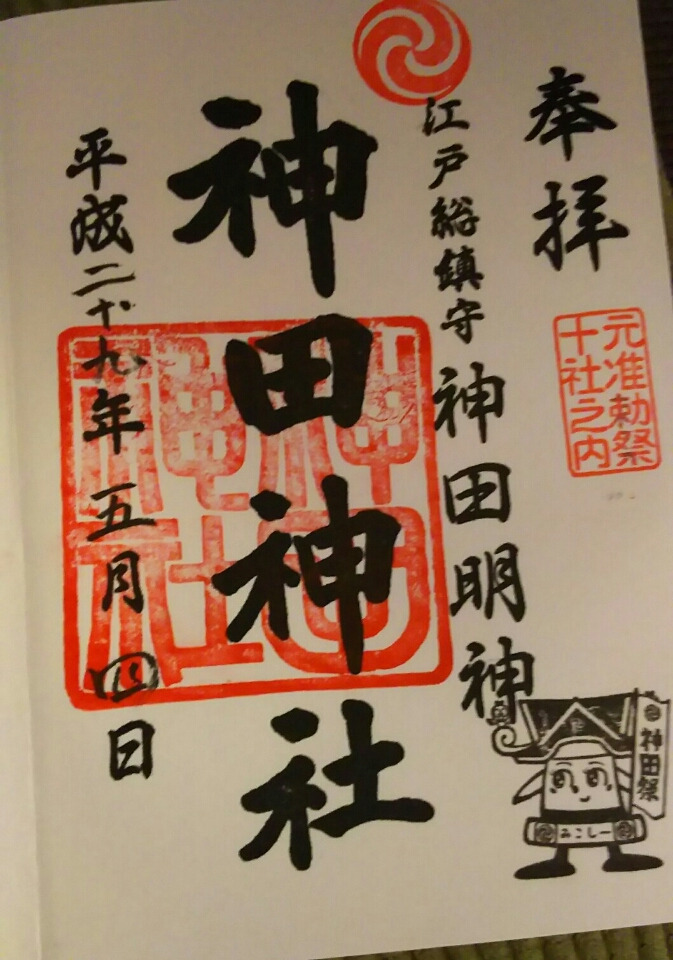 奉拝
元准勅祭
十社之内
江戸総鎮守 神田明神
神田神社
神田神社
平成二十九年五月四日
神田祭
みこしー